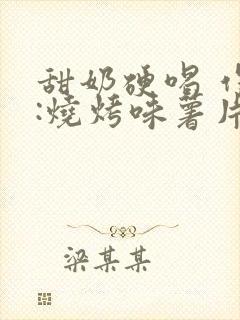 甜奶硬唱
:燒烤味薯片
梁某某